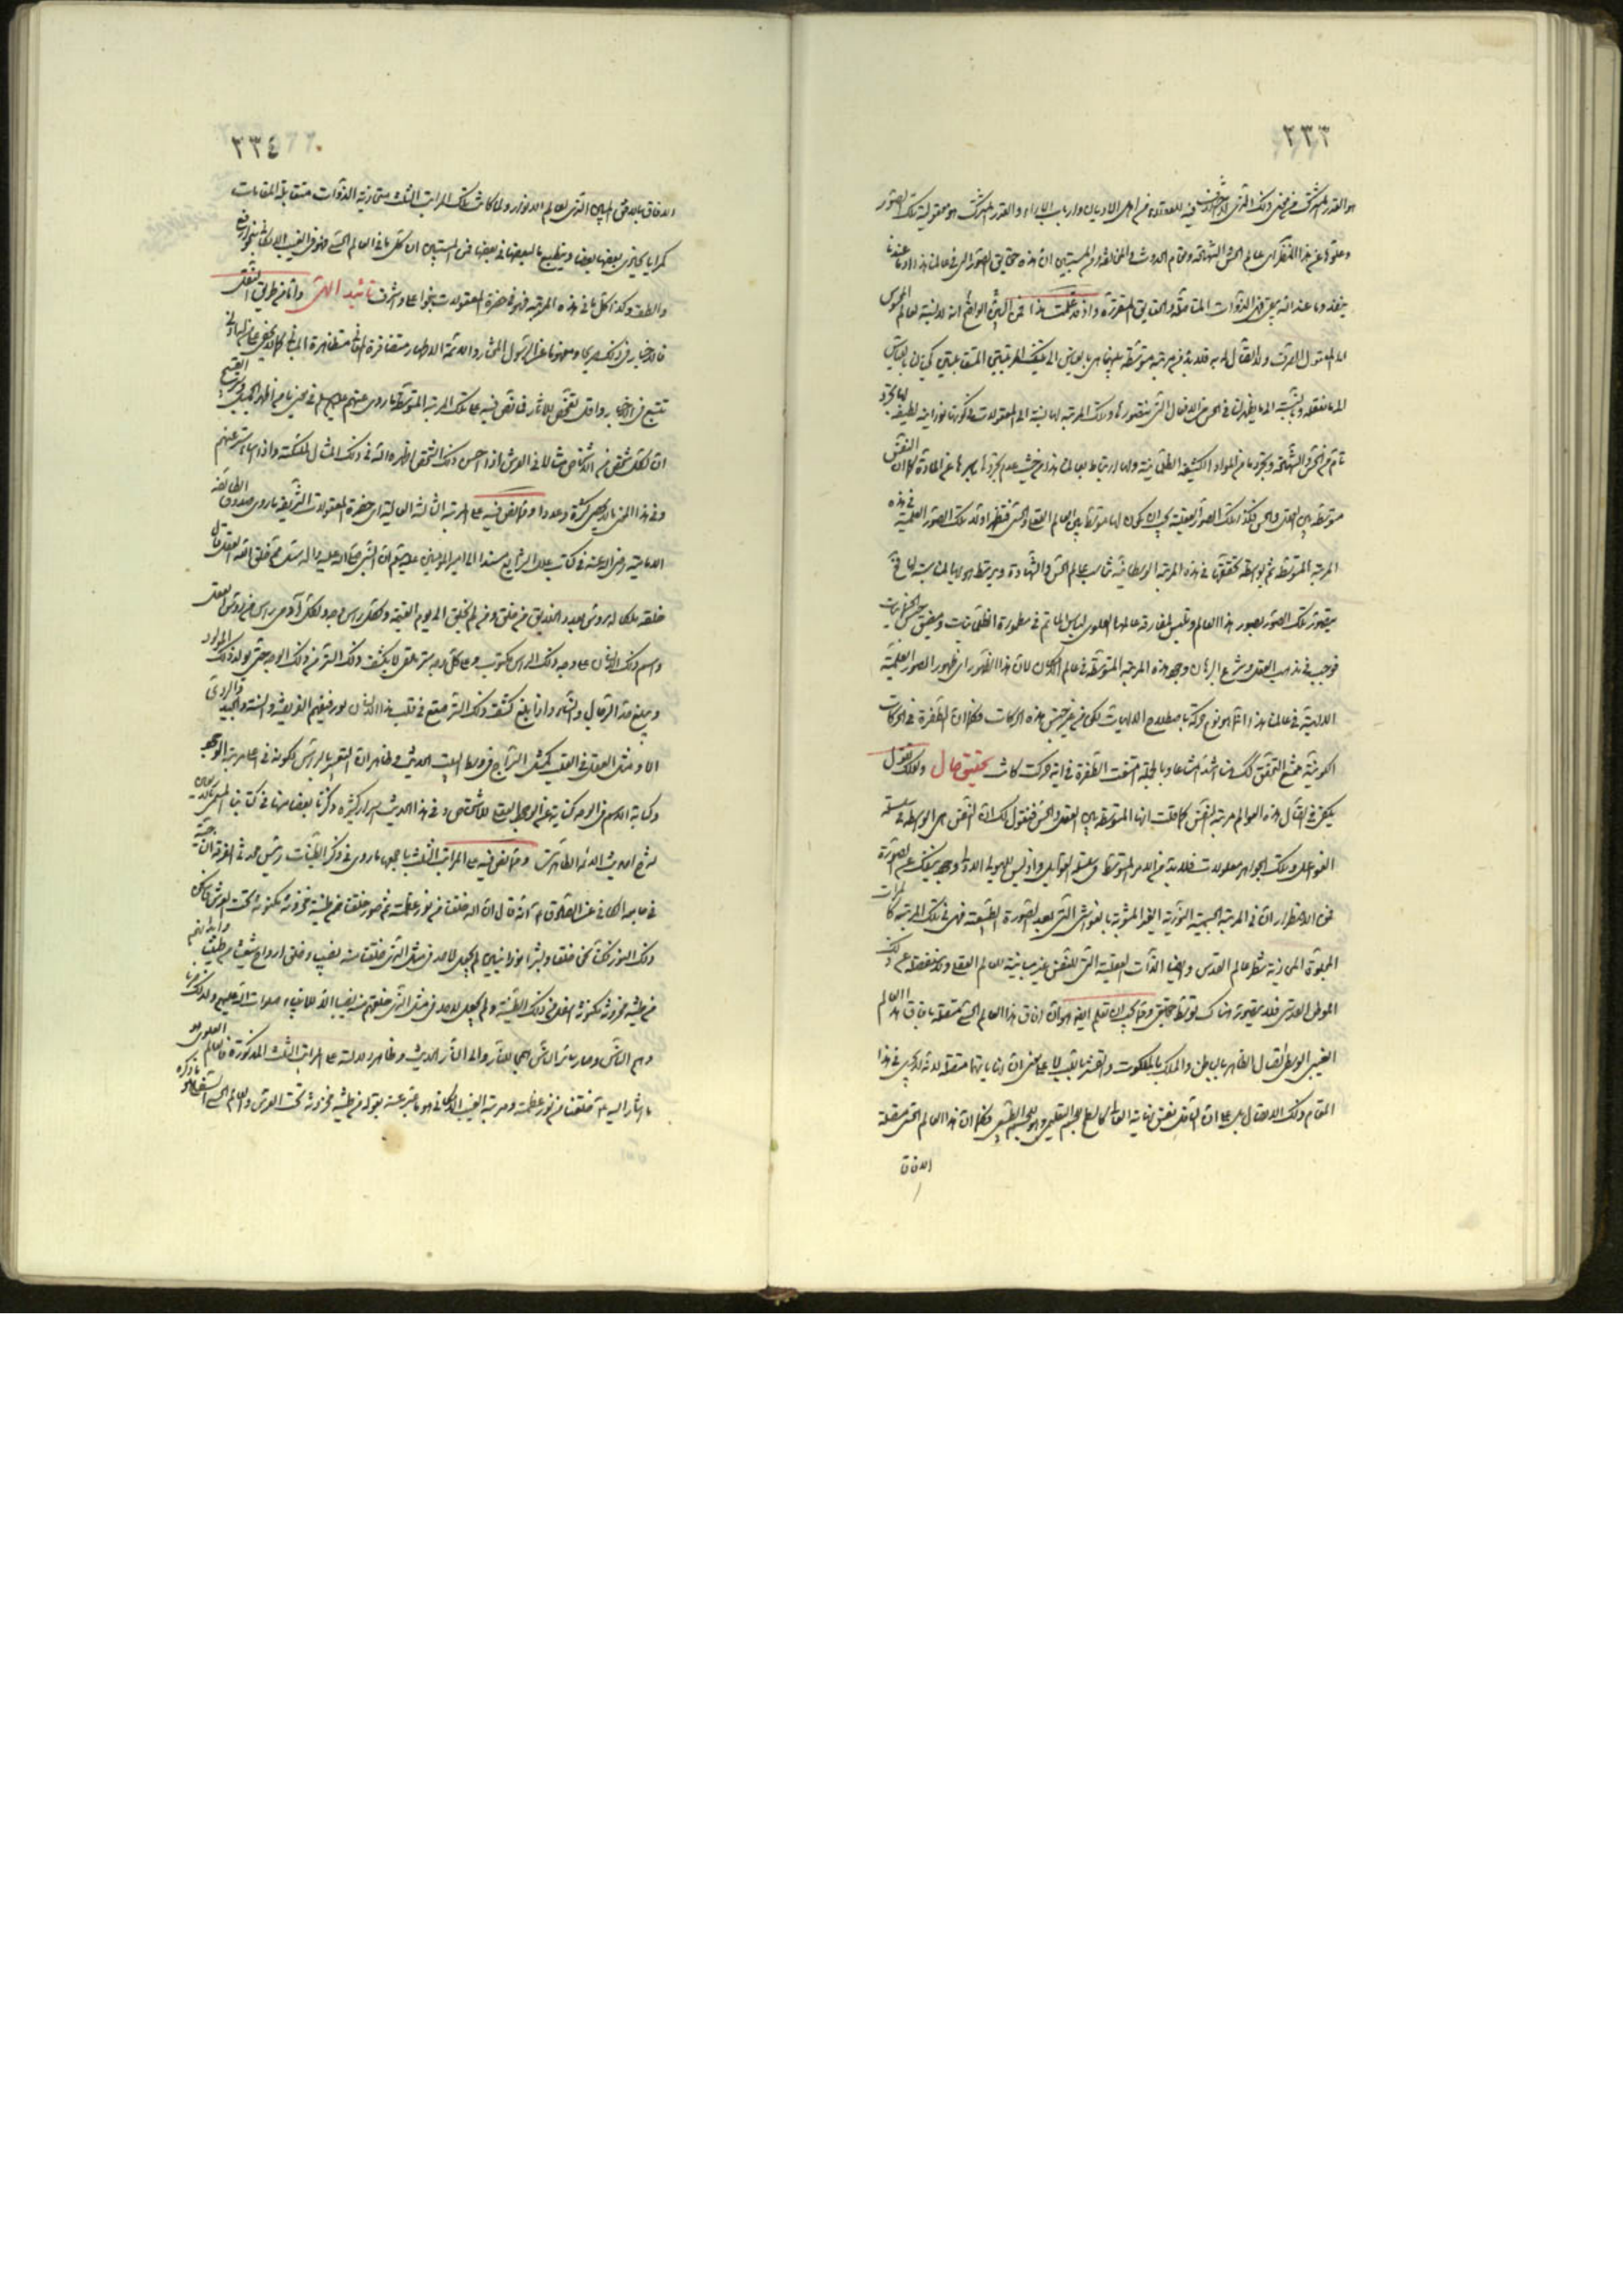 ٢٣٣
هو القدر المشترك من معنى ذلك الذي فيه للعقلاء من اهل الاديان وارباب الآراء والقدر المشترك هو معقولية تلك الصور
وعلوها عن هذا المنظر اى عالم الحس والشهادة ومقام الحدوث والمستبين ان هذه حقايق الصور التي في عالمنا هذا وما عندنا
ينفد وما عند الله يبقى فهى الذوات المتأصلة والحقايق المتقررة واذ قد علمت هذا فمن البين الواضح انه لا نسبة لعالم المحسوس
الى المعقول الصرف ولا اتصال له به فلا بد من مرتبة متوسطة بينهما
الى ما نعقله وبالنسبة الى ما يظهر لنا في الحس من الافعال التي نتصورها وتلك المرتبة لها نسبة الى المعقولات في كونها نورانية لطيفة
تامة من الحس والشهادة ومجردة من المواد الكثيفة الظلمانية ولها ارتباط بعالمنا هذا من حيث عدم تجردها بأسرها عن المادة كما ان النفس
متوسطة بين العقل والحس فكذلك الصور العقلية يجب ان يكون لها متوسط بين العالم العقلي والحسي فتظهر اولا تلك الصور العلمية في هذه
المرتبة المتوسطة ثم بواسطة تحققها في هذه المرتبة الوسطانية تناسب عالم الحس والشهادة ويرتبط
يتصور تلك الصور بصور هذا العالم وتلبس لمفارقة عالمها العلوى لباس المأتم في مطمورة الظلمانيات ومضيق حبس
فوجب في مذهب العقل وشرع البرهان وجود هذه المرتبة المتوسطة في عالم الاكوان لان هذا الظهور اى ظهور الصور العلمية
الالهية في عالمنا هذا انما هو نوع حركة باصطلاح الالهيات لكن من غير جنس هذه الحركات فكما ان الطفرة في الحركات
الكونية ممتنع التحقق كذلك هنا اشد امتناعا وبالجملة امتنعت الطفرة في اية حركة كانت تحقيق حال ولعلك تقول
يكفى في اتصال هذه العوالم مرتبة النفس كما قلت انها المتوسطة بين العقل والحس فنقول لك ان النفس هى الواسطة في سلسلة
الفواعل وتلك الجواهر معلولات فلا بد من الامر المتوسط في سلسلة القوابل واذ ليس للهيولى الاولى وجود ينفك عن الصورة
فمن الاضطرار ان في المرتبة الجسمية النورية الغير المشوبة بالغواشى التي بعد الصورة الطبيعية فهى في تلك المرتبة كالمرآت
المجلوة المحاذية شطر عالم القدس وايضا الذات العقلية التي للنفس غير مباينة للعالم العقلى ولا منفصلة عن ذلك
الموطن القدسى فلا يتصور هناك توسط حقيقى ومما يجب ان تعلم ايضا هو ان آفاق هذا العالم الحسى متصلة بآفاق هذا العالم
الغيبى الوسطى اتصال الظاهر بالباطن والملك بالملكوت والقشر باللب لا على معنى ان نهاياتها متصلة لانه لا يجرى في هذا
المقام ذلك الاتصال بل على ان الداخل نفس نهاية الخارج كالسطح للجسم التعليمى وهو للجسم الطبيعى فكما ان هذا العالم الحسى متصلة
الافاق
٢٣٤
الافاق بالافق المبين الذي لعالم الانوار ولما كانت تلك المراتب الثلث متحاذية الذوات متقابلة المقامات
كمرايا يحاذى بعضها بعضا وينطبع ما لبعضها في بعضها فمن المستبين ان كل ما في العالم الحسى فهو في الغيب الامكانى بنحو ارفع
والطف وكذا كل ما في هذه المرتبة فهو في حضرة المعقولات بنحو اعلى واشرف تائيد الهى واما من طريق النقل
فالاخبار في ذلك صريحا ومفهوما عن الرسول المختار والائمة الاطهار متضافرة المعانى متظاهرة المبانى كما لا يخفى على
تتبع في اخباره واقتفى آثاره فالنص فيه على تلك المرتبة المتوسطة ما روى عنهم عليهم السلم في معنى يا من اظهر الجميل وستر القبيح
ان لكل شخص من الاشخاص مثالا في العرش اذا احسن ذلك الشخص اظهره الله في ذلك المثال للملئكة واذا اساء ستر عنهم
وفي هذا المعنى ما لا يحصى كثرة وعددا ومما نص فيه على المرتبة الثالثة العالية اى حضرة المعقولات الشريفة ما روى صدوق الطائفة
الامامية رضى الله عنه في كتاب علل الشرايع مسندا الى امير المؤمنين عليه السلم ان النبى صلى الله عليه واله سئل مم خلق الله العقل قال
خلقه ملك له رؤس بعدد الخلايق من خلق ومن لم يخلق الى يوم القيمة ولكل راس وجه ولكل آدمى راس من رؤس العقل
واسم ذلك الانسان على وجه ذلك الراس مكتوب وعلى كل وجه ستر ملقى لا يكشف ذلك الستر من ذلك الوجه حتى يولد ذلك المولود
ويبلغ حد الرجال والنساء واذا بلغ كشف ذلك الستر فيقع في قلب هذا الانسان نور فيفهم الفريضة والسنة والجيد والردى
الا ومثل العقل في القلب كمثل السراج في وسط البيت الحديث وظاهر ان التعبير بالراس لكونه في اعلى مرتبة الوجود
وكتابة الاسم في الوجه كناية عن الوجود العقلى للاشخاص وفي هذا الحديث اسرار كثيرة ذكرنا بعضا منها في كتابنا المسمى
لشرح احاديث الائمة الطاهرين ومما نص فيه على المراتب الثلث باجمعها ما روى في ذكر الطينات رئيس محدثى الفرقة الناجية
في جامعه الكافى عن الصادق ع انه قال ان الله خلقنا من نور عظمته ثم صور خلقنا من طينة مخزونة مكنونة تحت العرش فاسكن
ذلك النور فكنا نحن خلقا وبشرا نورانيين لم يجعل لاحد في مثل الذي خلقنا منه نصيب وخلق ارواح شيعتنا من طينتنا وابدانهم
من طينة مخزونة مكنونة اسفل من ذلك الطينة ولم يجعل لاحد في مثل الذي خلقهم منه نصيبا الا للانبياء صلوات الله عليهم ولذلك صرنا
وهم الناس وصار سائر الناس همجا للنار والى النار الحديث وظاهر دلالته على المراتب الثلث المذكورة فالعالم العلوى هو
ما اشار اليه ع خلقنا من نور عظمته ومرتبة الغيب الامكانى هو ما عبر عنه بقوله من طينة مخزونة تحت العرش والعالم الحسى السفلى هو ما ذكره